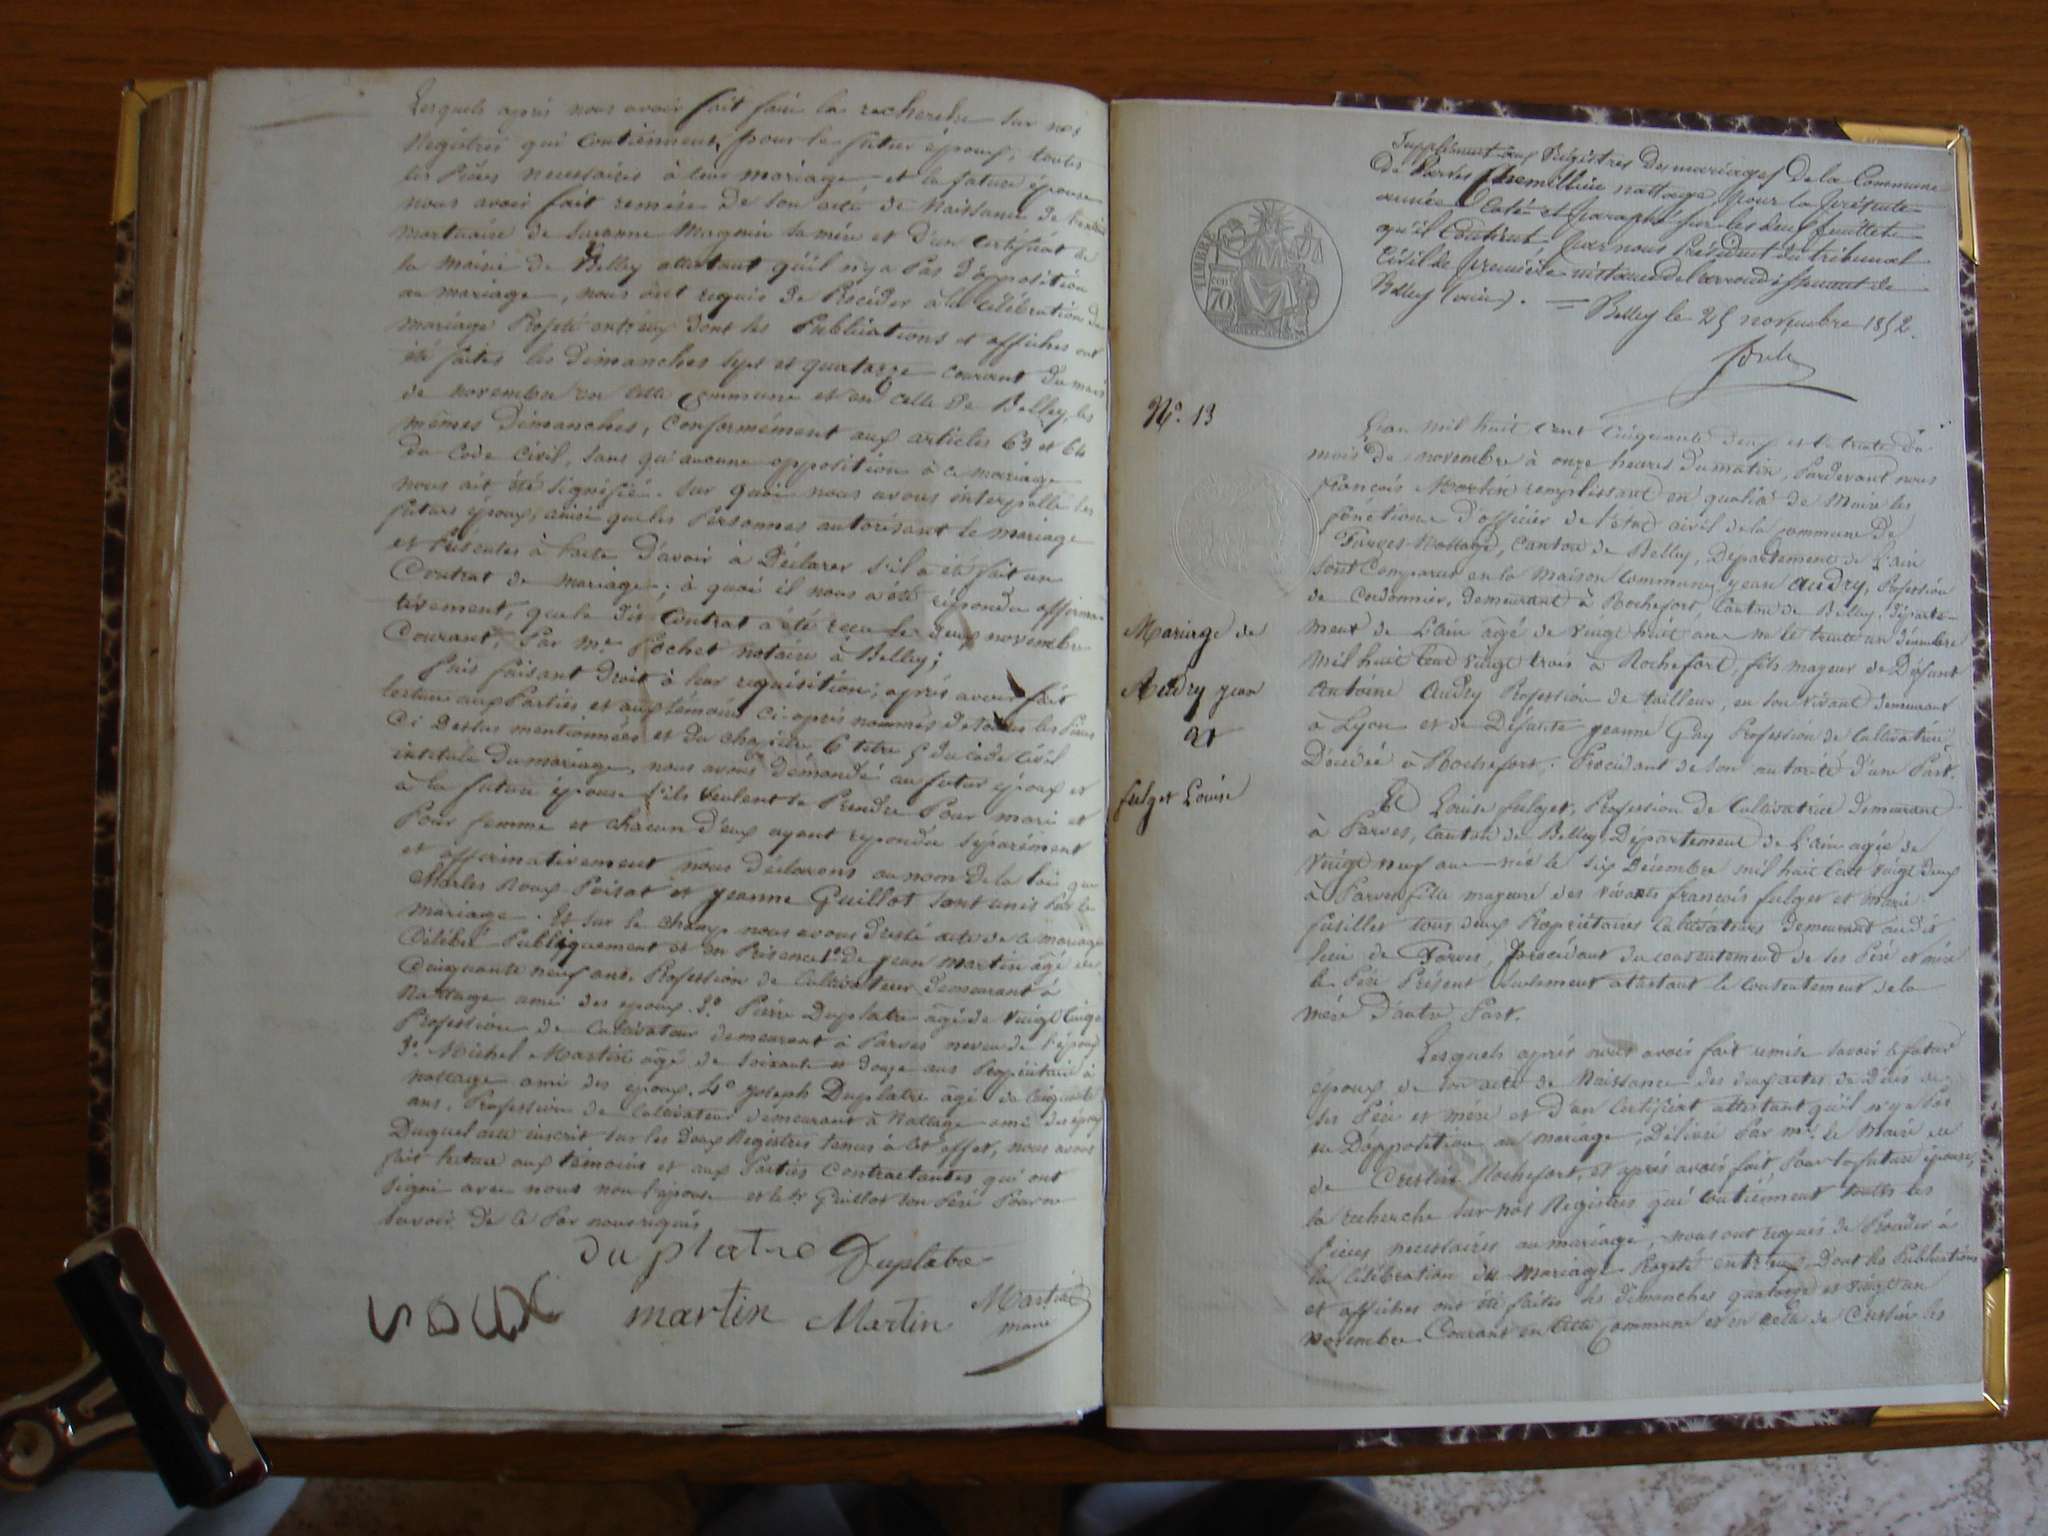 Lesquels après nous avoir fait faire la recherche sur nos
Régistres qui contiennent, pour le futur époux, toutes
les Pièces necessaires à leur mariage, et la future épouse
nous avoir fait remise de son acte de Naissance de
mortuaire de Suzanne Magnin sa mère et d'un certificat de
la mairie de Belley attestant qu'il n'y a Pas d'opposition
au mariage, nous ont requis de Procéder à la célébration du
mariage Projeté entr'eux dont les Publications et affiches ont
été faites les Dimanches sept et quatorze courant du mois
de novembre en cette commune et en celle de Belley, les
mêmes Dimanches, conformément aux articles 63 et 64
du Code Civil, sans qu'aucune opposition à ce mariage
nous ait été signifié. Sur quoi nous avons interpellé les
futurs époux, ainsi que les Personnes autorisant le mariage
et Présentes à l'acte d'avoir à Déclarer s'il a été fait un
Contrat de mariage; à quoi il nous a été répondu affirma-
tivement, que le dit Contrat a été reçu le deux novembre
Courant, Par Me Pochet notaire à Belley;
Puis faisant Droit à leur réquisition; après avoir fait
lecture aux Parties et aux témoins ci-après nommés de toutes les Pièces
ci Dessus mentionnées et du chapitre 6 titre 5 du Code Civil
intitulé du mariage, nous avons demandé au futur époux et
à la future épouse s'ils veulent se Prendre Pour mari et
Pour femme et chacun d'eux ayant repondu séparément
et affirmativement nous déclarons au nom de la loi que
Charles Roux Poisat et jeanne Guillot sont unis Par le
mariage. Et sur le champ nous avons dressé acte de ce mariage
Célébré Publiquement et en Présence 1° de jean Martin âgé de
Cinquante neuf ans, Profession de Cultivateur demeurant à
Nattage ami des epoux. 2° Pierre Duplatre âgé de vingt cinq
Profession de Cultivateur demeurant à Parves neveu de l'époux
3° Michel Martin âgé de Soixante et douze ans Propriétaire à
nattage ami des epoux. 4° joseph Duplatre âgé de Cinquante
ans, Profession de Cultivateur demeurant à Nattage ami des époux
Duquel acte inscrit sur les deux Régistres tenus à cet effet, nous avons
fait lecture aux témoins et aux Parties Contractantes qui ont
signé avec nous non l'épouse et le Sr Guillot son Père Pour ne
savoir de ce Par nous requis
duplatre Duplatre
martin Martin Martin
maire
Supplément aux Régistres des mariages de la Commune
de Parves nattage pour la présente
année Coté et paraphé sur les deux feuillets
qu'il Contient par nous Président du tribunal
Civil de première instance de l'arrondissement de
Belley (ain). = Belley le 25 novembre 1852.
TIMBRE
70
N°. 13
Mariage de
Audry jean
et
fulget Louise
L'an mil huit Cent Cinquante deux et le trente du
mois de novembre à onze heures du matin, Pardevant nous
François Martin remplissant en qualité de Maire les
fonctions d'officier de l'état civil de la commune de
Parves Nattage, Canton de Belley, Département de L'ain
sont comparus en la Maison Commune jean Audry, Profession
de Cordonnier, demeurant à Rochefort, Canton de Belley, Départe-
ment de L'ain âgé de vingt huit ans né le trente un décembre
mil huit Cent vingt trois à Rochefort, fils majeur de Défunt
Antoine Audry Profession de tailleur, en son vivant demeurant
à Lyon et de Défunte jeanne Gay Profession de Cultivatrice,
Décédée à Rochefort. Procédant de son autorité d'une Part.
Et Louise fulget, Profession de Cultivatrice demeurant
à Parves, Canton de Belley Département de L'ain agée de
vingt neuf ans née le six Décembre mil huit Cent vingt deux
à Parves fille majeure des vivants françois fulget et marie
fusillet tous deux Propriétaires Cultivateurs demeurant au dit
lieu de Parves, Procédant du consentement de ses Père et mère
le Père Présent seulement attestant le Consentement de la
mère d'autre Part.
Lesquels après nous avoir fait remise savoir le futur
époux de son acte de Naissance des deux actes de Décès de
ses Père et mère et d'un Certificat attestant qu'il n'y a Pas
eu D'opposition au mariage, Délivré Par mr le Maire
de Cressin Rochefort, et après avoir fait Pour la future epouse,
la recherche sur nos Régistres qui contiennent toutes les
Pièces necessaires au mariage, nous ont requis de Procéder à
la Célébration du mariage Projeté entr'eux Dont les Publications
et affiches ont été faites les dimanches quatorze et vingt un
novembre Courant en cette Commune et en celle de Cressin les